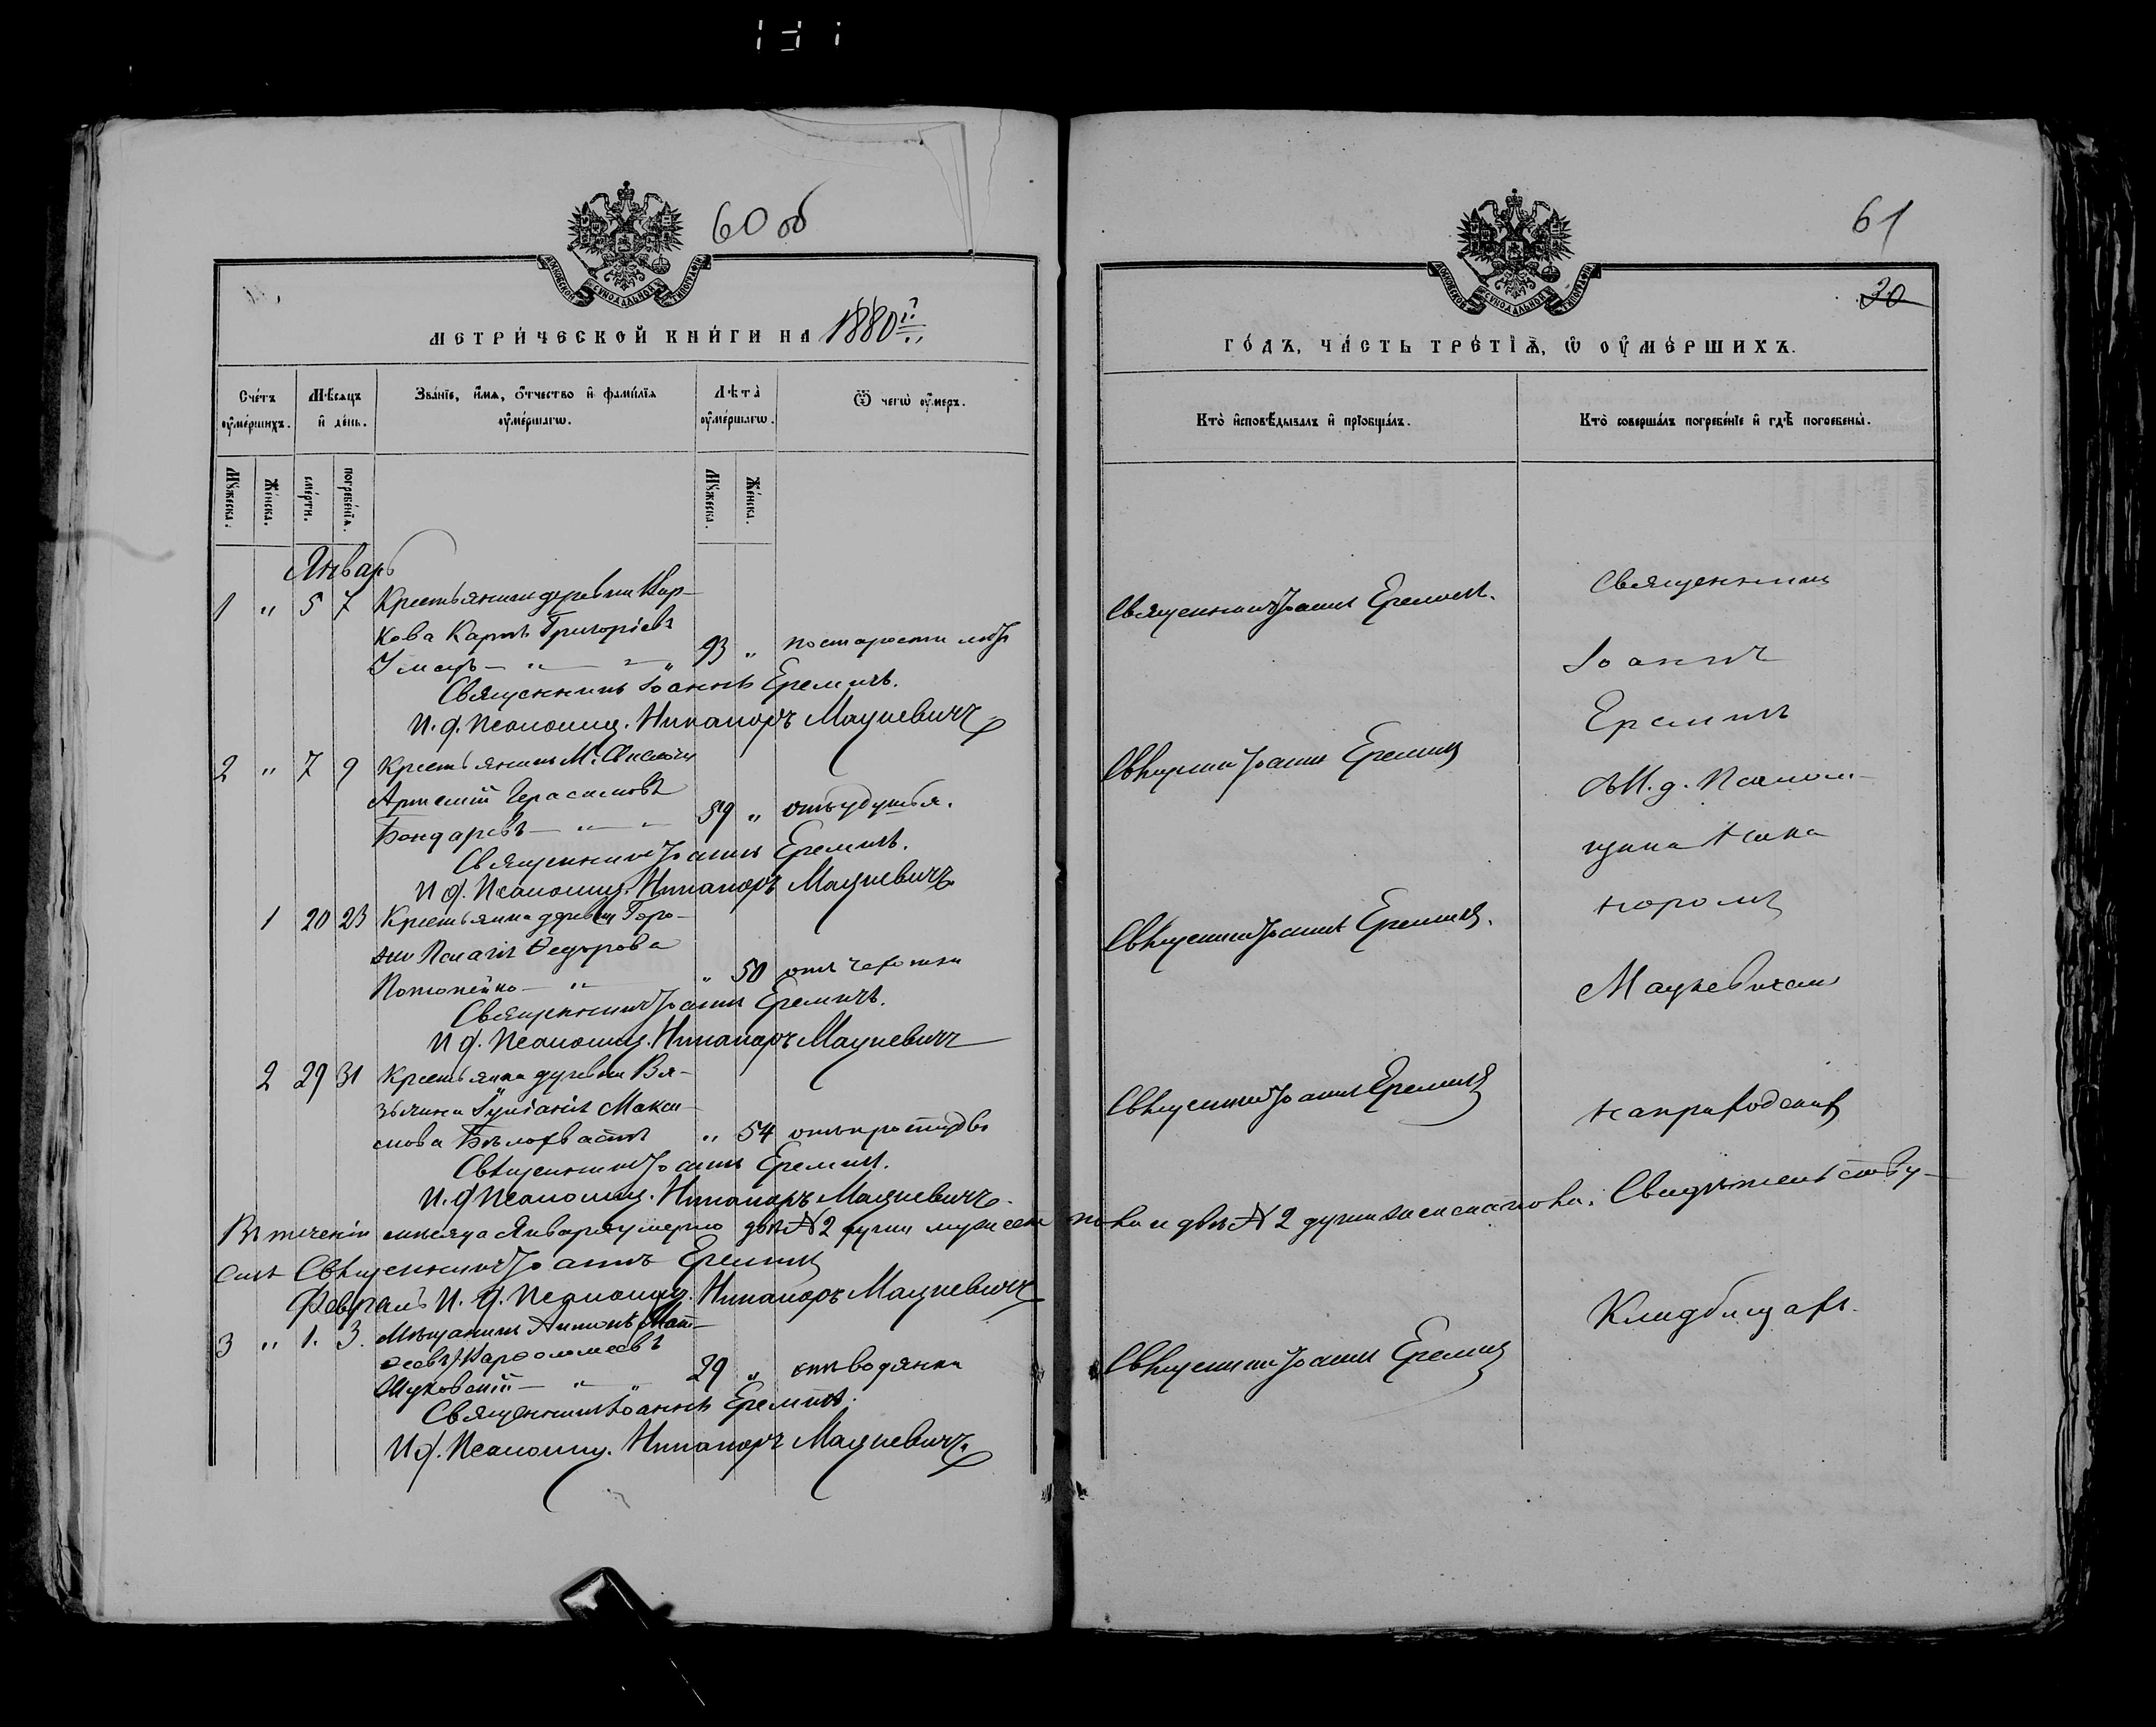 60 об
МОСКОВСКОЙ СѴНОДАЛЬНОЙ ТИПОГРАФІИ
МЕТРИЧЕСКОЙ КНИГИ НА 1880й
Счетъ оумершихъ.
Мѣсяцъ и день.
Званіе, имя, отчество и фамилія оумершагѡ.
Лѣта оумершагѡ.
Ѿ чегѡ оумеръ.
Мужеска.
Женска.
смерти.
погребенія.
Мужеска.
Женска.
Январь
1 " 5 7 Крестьянинъ деревни
Карпъ Григорьевъ
93 " по старости лѣтъ
Священникъ Іоаннъ Еремичъ.
И. д. Псаломщ. Никаноръ Мацкевичъ
2 " 7 9 Крестьянинъ М.
Артемій Герасимовъ
Бондаревъ — " — 59 " отъ удушья.
Священникъ Іоаннъ Еремичъ.
И д. Псаломщ. Никаноръ Мацкевичъ
1 20 23 Крестьянка деревни
Федорова
" 50 отъ чахотки
Священникъ Іоаннъ Еремичъ.
И д. Псаломщ. Никаноръ Мацкевичъ
2 29 31 Крестьянка деревни Вя-
Макси-
мова " 54 отъ простуды
Священникъ Іоаннъ Еремичъ.
И. д Псаломщ. Никаноръ Мацкевичъ.
Въ теченіи мѣсяца Января умерло двѣ № 2 души мужеска пола и двѣ № 2 души женска пола. Свидѣтельству-
емъ Священникъ Іоаннъ Еремичъ
Февраль И. д. Псаломщ. Никаноръ Мацкевичъ
3 " 1. 3. Мѣщанинъ Антонъ Мат-
ѳеевъ Варѳоломеевъ
Жуковскій — " — 29 " отъ водянки
Священникъ Іоаннъ Еремичъ.
И д. Псаломщ. Никаноръ Мацкевичъ.
61
30
МОСКОВСКОЙ СѴНОДАЛЬНОЙ ТИПОГРАФІИ
ГОДЪ, ЧАСТЬ ТРЕТІЯ, Ѡ ОУМЕРШИХЪ.
Кто исповѣдывалъ и пріобщалъ.
Кто совершалъ погребеніе и гдѣ погребены.
Священникъ Іоаннъ Еремичъ.
Священникъ Іоаннъ Еремичъ
Священникъ Іоаннъ Еремичъ.
Священникъ Іоаннъ Еремичъ
Священникъ Іоаннъ Еремичъ
Священникъ
Іоаннъ
Еремичъ
съ И. д. Псалом-
щика Ника
норомъ
Мацкевичемъ
на приходскихъ
Кладбищахъ.